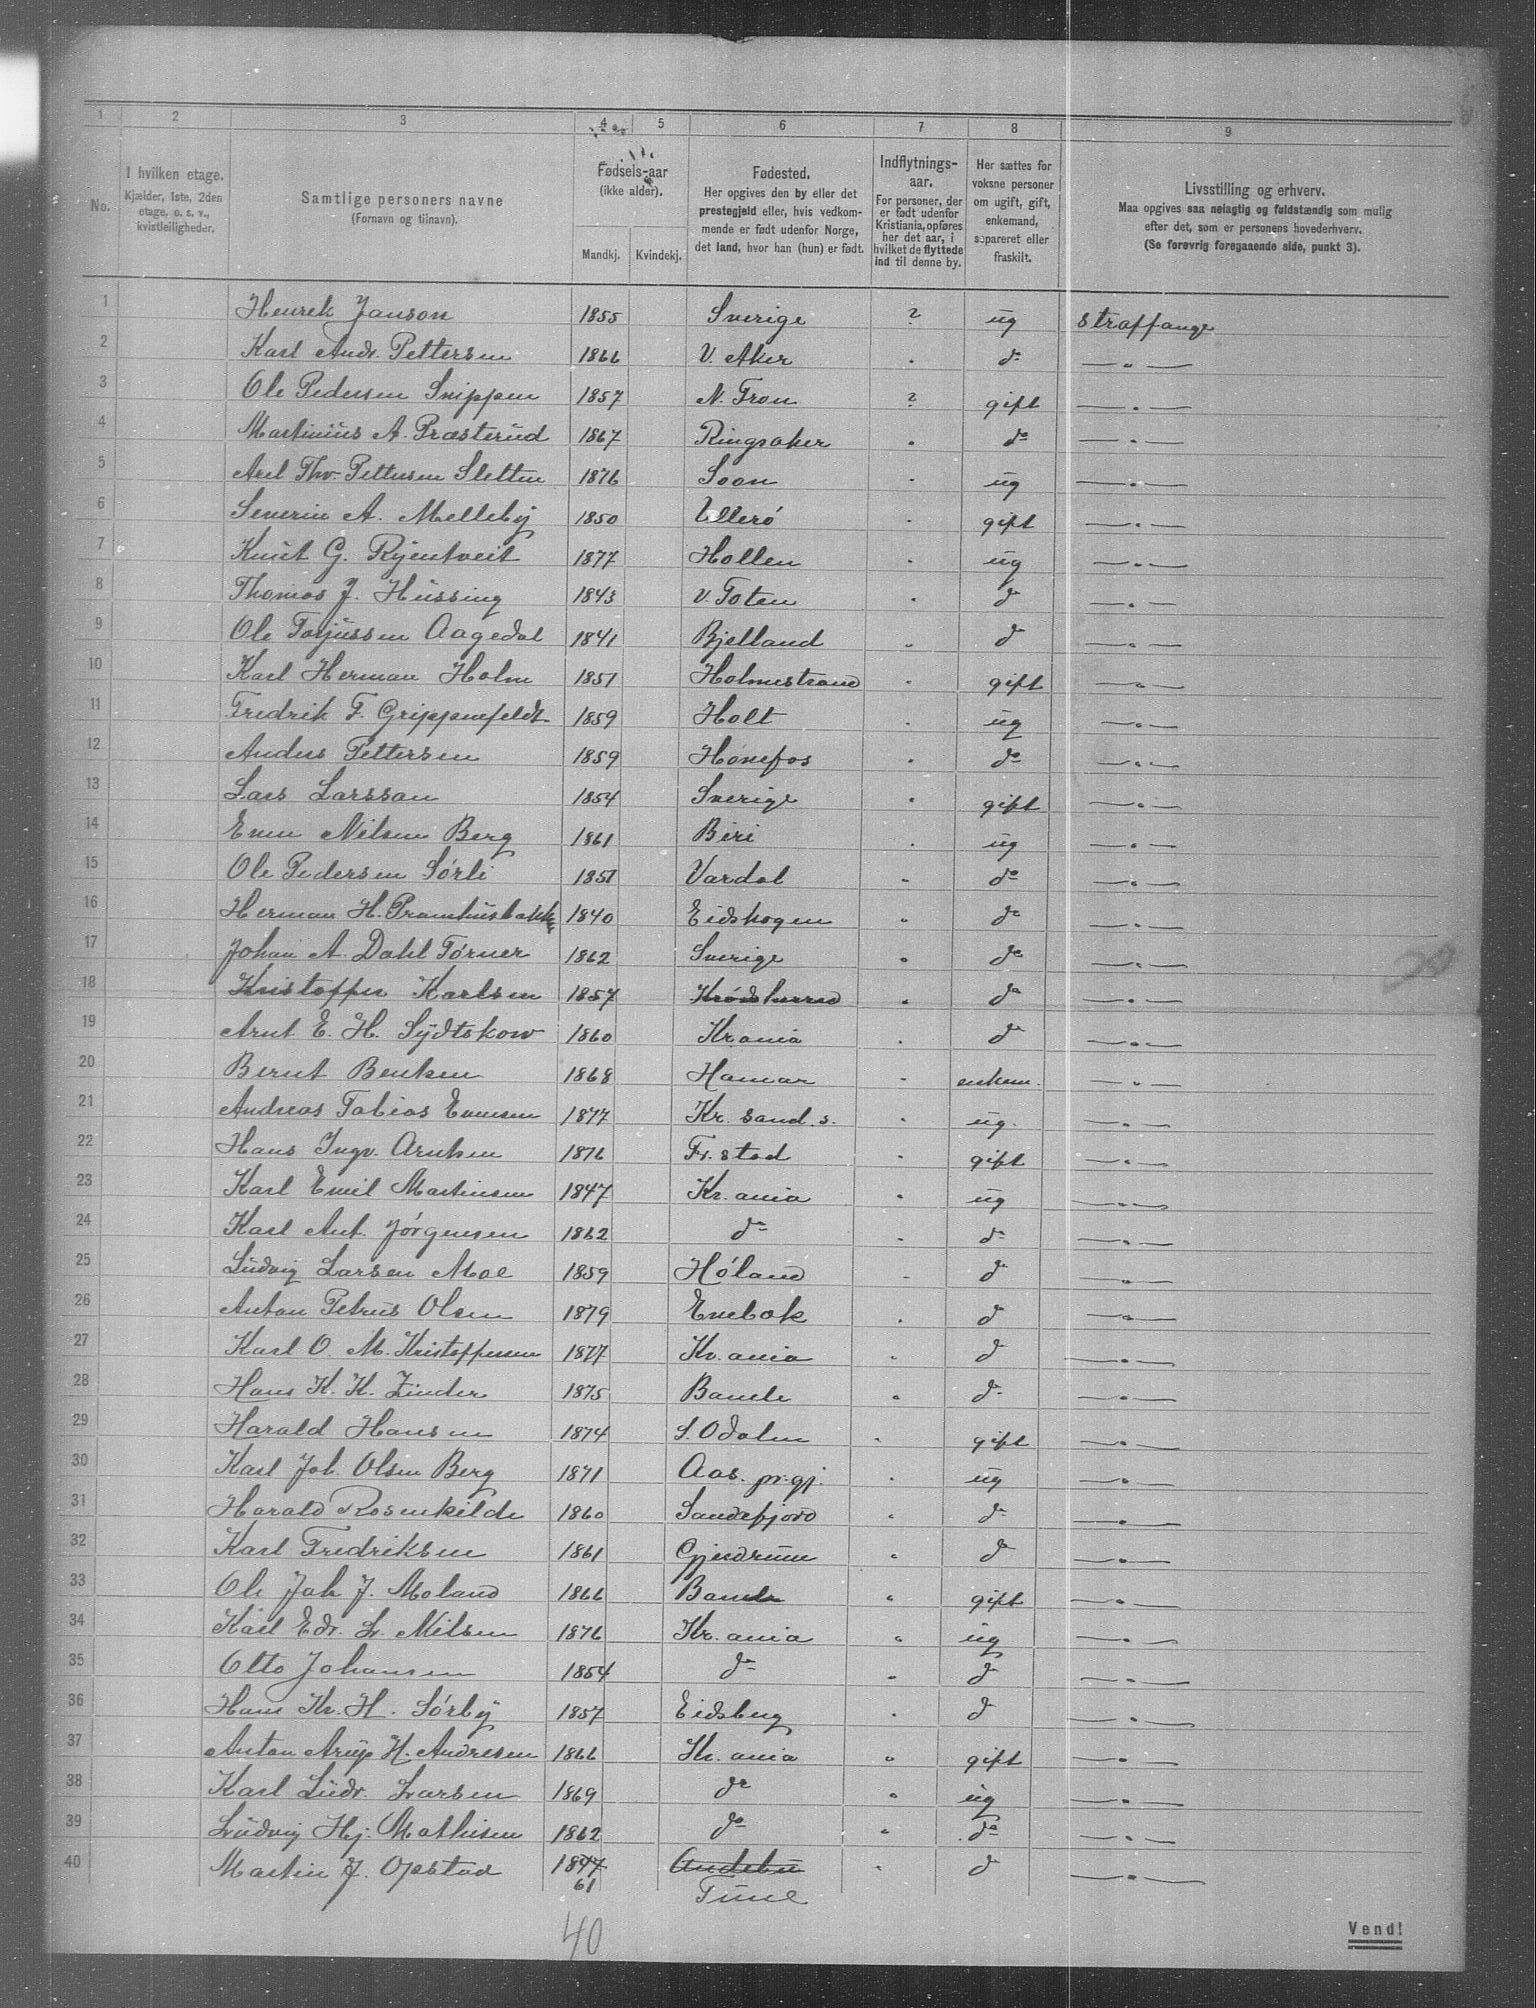 1 2 3 4 5 6 7 8 9
No. I hvilken etage. Kjælder, 1ste, 2den etage, o. s. v., kvistleiligheder. Samtlige personers navne (Fornavn og tilnavn). Fødsels-aar (ikke alder). Mandkj. Kvindekj. Fødested. Her opgives den by eller det prestegjeld eller, hvis vedkommende er født udenfor Norge, det land, hvor han (hun) er født. Indflytnings-aar. For personer, der er født udenfor Kristiania, opføres her det aar, i hvilket de flyttede ind til denne by. Her sættes for voksne personer om ugift, gift, enkemand, separeret eller fraskilt. Livsstilling og erhverv. Maa opgives saa nøiagtig og fuldstændig som mulig efter det, som er personens hovederhverv. (Se forøvrig foregaaende side, punkt 3).
1 Henrek Janson 1855 Sverige ? ug straffange
2 Karl Andr. Pettersen 1866 V. Aker " do —"—
3 Ole Pedersen Snippen 1857 N. Fron ? gift —"—
4 Martinius A. Præsterud 1867 Ringsaker " do —"—
5 Axel Thv. Pettersen Sletten 1876 Soon " ug —"—
6 Severin A. Melleby 1850 Ullerø " gift —"—
7 Knut G. Rjentveit 1877 Hollen " ug —"—
8 Thomas J. Hussing 1843 V. Toten " do —"—
9 Ole Torjussen Aagedal 1841 Bjelland " do —"—
10 Karl Herman Holm 1851 Holmestrand " gift —"—
11 Fredrik F. Grippenfeldt 1859 Holt " ug —"—
12 Anders Pettersen 1859 Hønefos " do —"—
13 Lars Larsson 1854 Sverige " gift —"—
14 Even Nilsen Berg 1861 Biri " ug —"—
15 Ole Pedersen Sørli 1851 Vardal " do —"—
16 Herman H. Pramhusbakke 1840 Eidskogen " do —"—
17 Johan A. Dahl Törner 1862 Sverige " do —"—
18 Kristoffer Karlsen 1857 Krødsherred " do —"—
19 Arnt E. H. Sydtskow 1860 Kr.ania " do —"—
20 Bernt Bentsen 1868 Hamar " enkem. —"—
21 Andreas Tobias Evensen 1877 Kr. sand. s. " ug. —"—
22 Hans Ingv. Arntsen 1876 Fr. stad " gift —"—
23 Karl Emil Martinsen 1847 Kr. ania " ug —"—
24 Karl Ant. Jørgensen 1862 do " do —"—
25 Ludvig Larsen Moe 1859 Høland " do —"—
26 Anton Petrus Olsen 1879 Enebak " do —"—
27 Karl O. M. Kristoffersen 1877 Kr. ania " do —"—
28 Hans K. K. Zinder 1875 Bamle " do —"—
29 Harald Hansen 1874 S. Odalen " gift —"—
30 Karl Joh. Olsen Berg 1871 Aas. pr.gj. " ug —"—
31 Harald Rosenkilde 1860 Sandefjord " do —"—
32 Karl Fredriksen 1861 Gjerdrum " do —"—
33 Ole Joh J. Moland 1866 Bamle " gift —"—
34 Karl Edv. L. Nilsen 1876 Kr. ania " ug —"—
35 Otto Johansen 1854 do " do —"—
36 Hans Kr. H. Sørby 1857 Eidsberg " do —"—
37 Anton Arup H. Andresen 1866 Kr. ania " gift —"—
38 Karl Ludv. Larsen 1869 do " ug —"—
39 Ludvig Hj. Mathisen 1862 do " do —"—
40 Martin J. Opstad 1847 Andebu " do —"—
61 Tune
40
Vend!